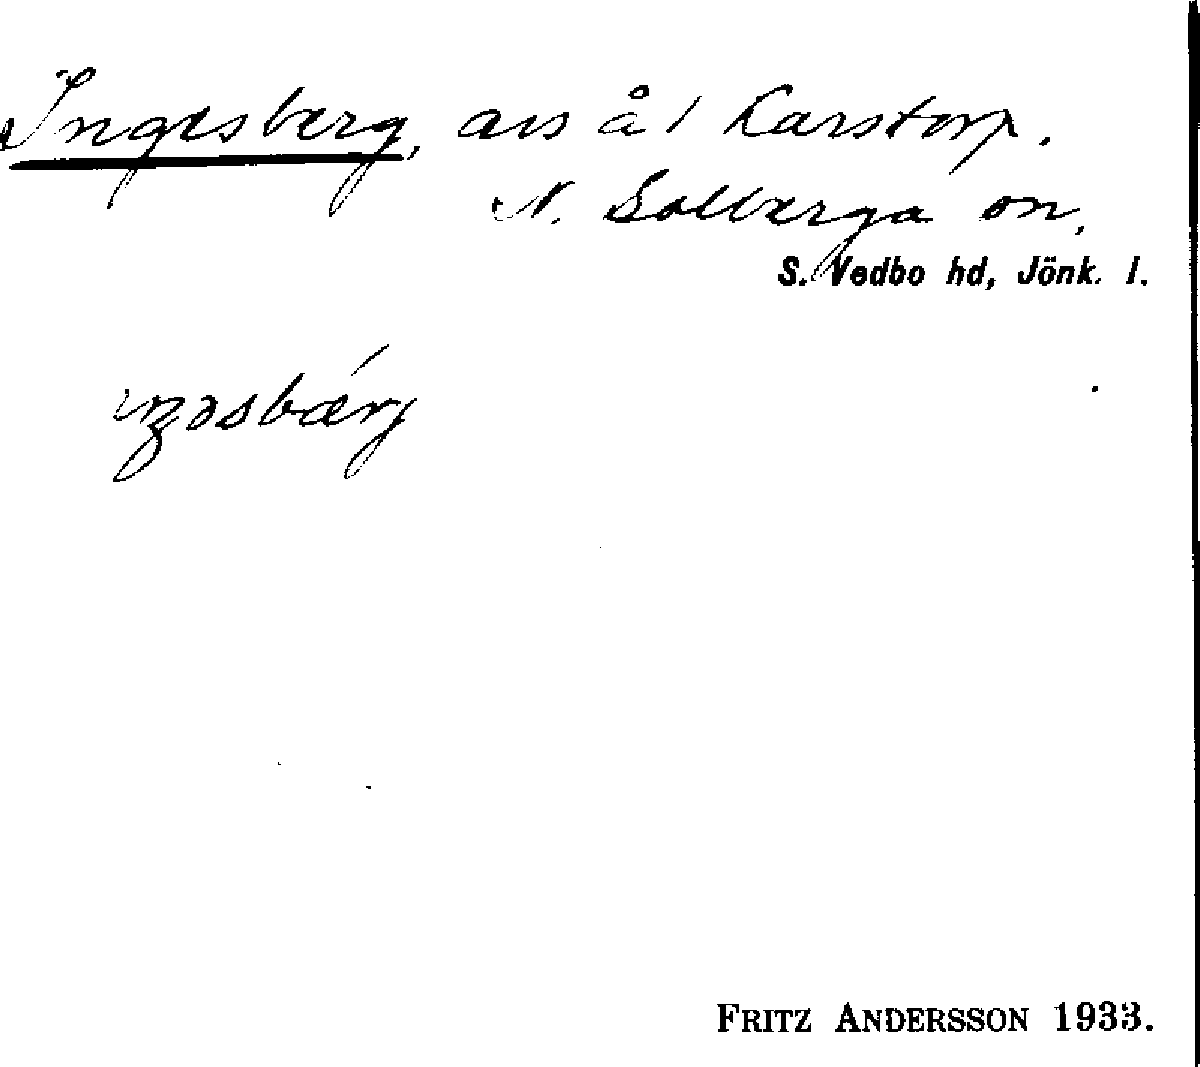 Ingesberg, avs å 1 Karstorp.
N. Solberga sn,
S. Vedbo hd, Jönk. l.
FRITZ ANDERSSON 1933.